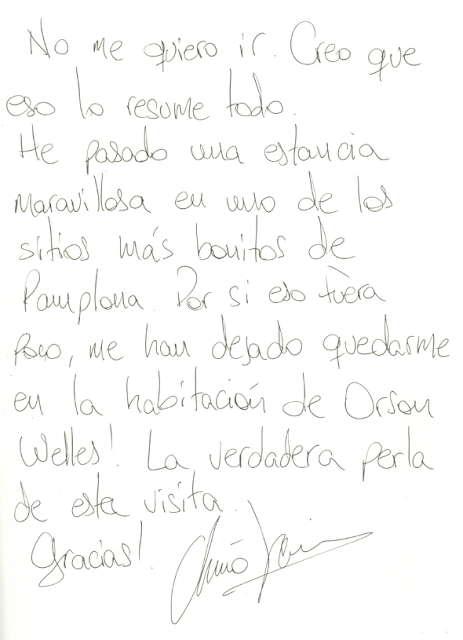 No me quiero ir. Creo que
eso lo resume todo.
He pasado una estancia
maravillosa en uno de los
sitios más bonitos de
Pamplona. Por si eso fuera
poco, me han dejado quedarme
en la habitación de Orson
Welles! La verdadera perla
de esta visita.
Gracias!